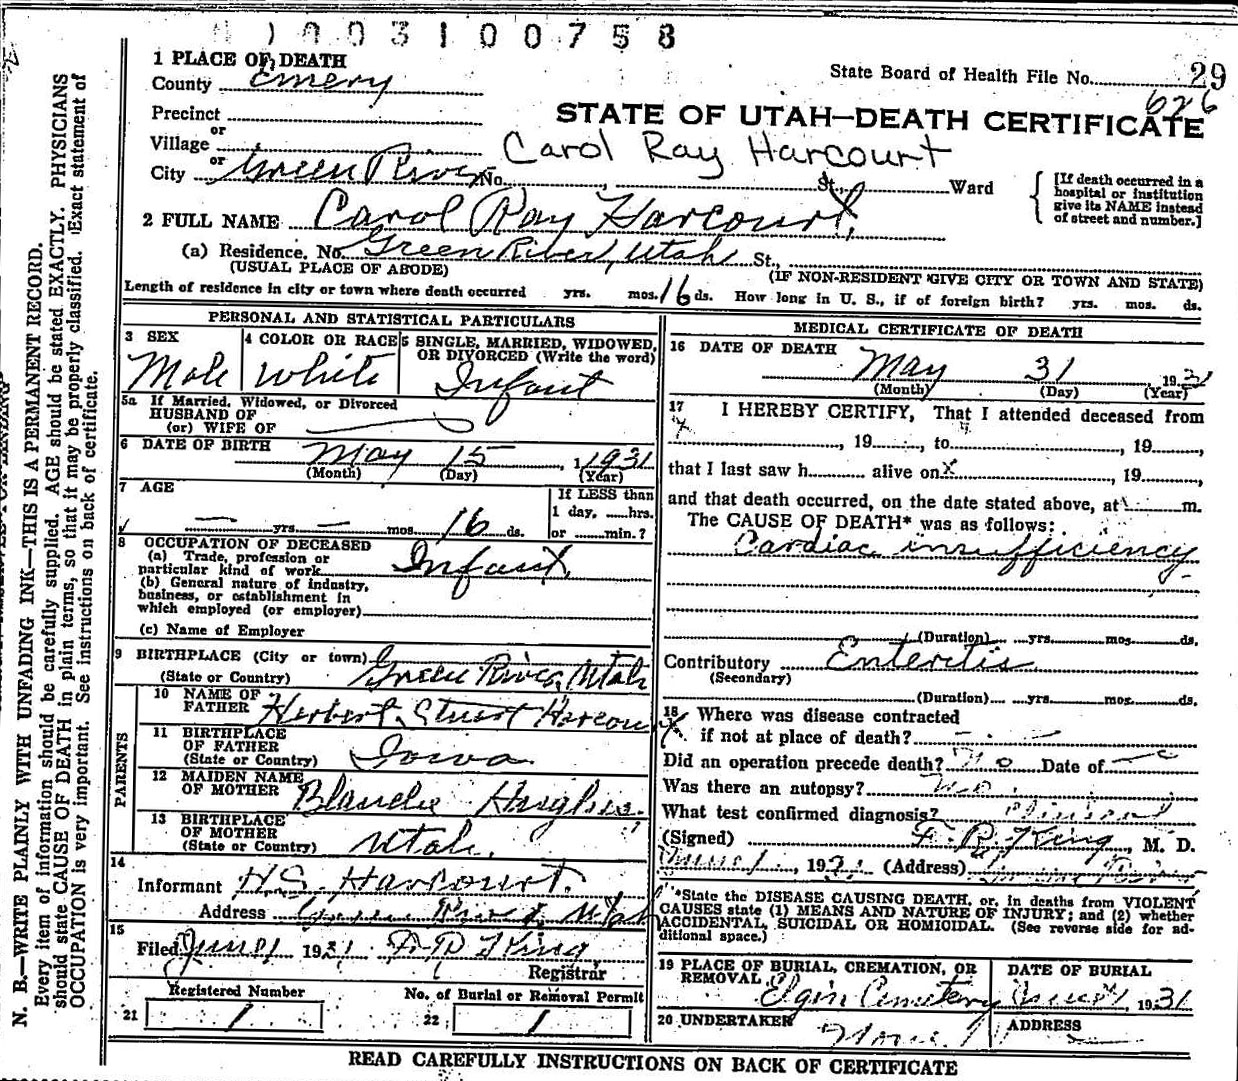 1003100758
1 PLACE OF DEATH
County Emery
State Board of Health File No. 29
626
Precinct
or
Village
STATE OF UTAH—DEATH CERTIFICATE
Carol Ray Harcourt
or
City Green River No. St., Ward
[If death occurred in a
hospital or institution
give its NAME instead
of street and number.]
2 FULL NAME Carol Ray Harcourt
(a) Residence. No. Green River, Utah St.,
(USUAL PLACE OF ABODE) (IF NON-RESIDENT GIVE CITY OR TOWN AND STATE)
Length of residence in city or town where death occurred yrs. mos. 16 ds. How long in U. S., if of foreign birth? yrs. mos. ds.
PERSONAL AND STATISTICAL PARTICULARS
3 SEX
Male
4 COLOR OR RACE
White
5 SINGLE, MARRIED, WIDOWED,
OR DIVORCED (Write the word)
Infant
5a If Married, Widowed, or Divorced
HUSBAND OF
(or) WIFE OF
6 DATE OF BIRTH
May 15, 1931
(Month) (Day) (Year)
7 AGE
— yrs. — mos. 16 ds.
If LESS than
1 day, hrs.
or min.?
8 OCCUPATION OF DECEASED
(a) Trade, profession or
particular kind of work Infant
(b) General nature of industry,
business, or establishment in
which employed (or employer)
(c) Name of Employer
9 BIRTHPLACE (City or town)
(State or Country) Green River, Utah
PARENTS
10 NAME OF
FATHER Herbert Stuart Harcourt
11 BIRTHPLACE
OF FATHER
(State or Country) Iowa
12 MAIDEN NAME
OF MOTHER Blanche Hughes
13 BIRTHPLACE
OF MOTHER
(State or Country) Utah.
14
Informant H.S. Harcourt.
Address Green River, Utah
15
Filed June 1 1931 King
Registrar
Registered Number
21 1
No. of Burial or Removal Permit
22 1
MEDICAL CERTIFICATE OF DEATH
16 DATE OF DEATH
May 31 1931
(Month) (Day) (Year)
17
I HEREBY CERTIFY, That I attended deceased from
, 19 , to , 19 ,
that I last saw h alive on , 19 ,
and that death occurred, on the date stated above, at m.
The CAUSE OF DEATH* was as follows:
Cardiac insufficiency
(Duration) yrs. mos. ds.
Contributory Enteritis
(Secondary)
(Duration) yrs. mos. ds.
18 Where was disease contracted
if not at place of death?
Did an operation precede death? No Date of
Was there an autopsy? No.
What test confirmed diagnosis? Clinical
(Signed) F. R. King, M. D.
June 1, 1931 (Address) Green River
*State the DISEASE CAUSING DEATH, or, in deaths from VIOLENT
CAUSES state (1) MEANS AND NATURE OF INJURY; and (2) whether
ACCIDENTAL, SUICIDAL OR HOMICIDAL. (See reverse side for ad-
ditional space.)
19 PLACE OF BURIAL, CREMATION, OR
REMOVAL
Elgin Cemetery
DATE OF BURIAL
June 1, 1931
20 UNDERTAKER
None
ADDRESS
READ CAREFULLY INSTRUCTIONS ON BACK OF CERTIFICATE
N. B.—WRITE PLAINLY WITH UNFADING INK—THIS IS A PERMANENT RECORD.
Every item of information should be carefully supplied. AGE should be stated EXACTLY. PHYSICIANS
should state CAUSE OF DEATH in plain terms, so that it may be properly classified. Exact statement of
OCCUPATION is very important. See instructions on back of certificate.